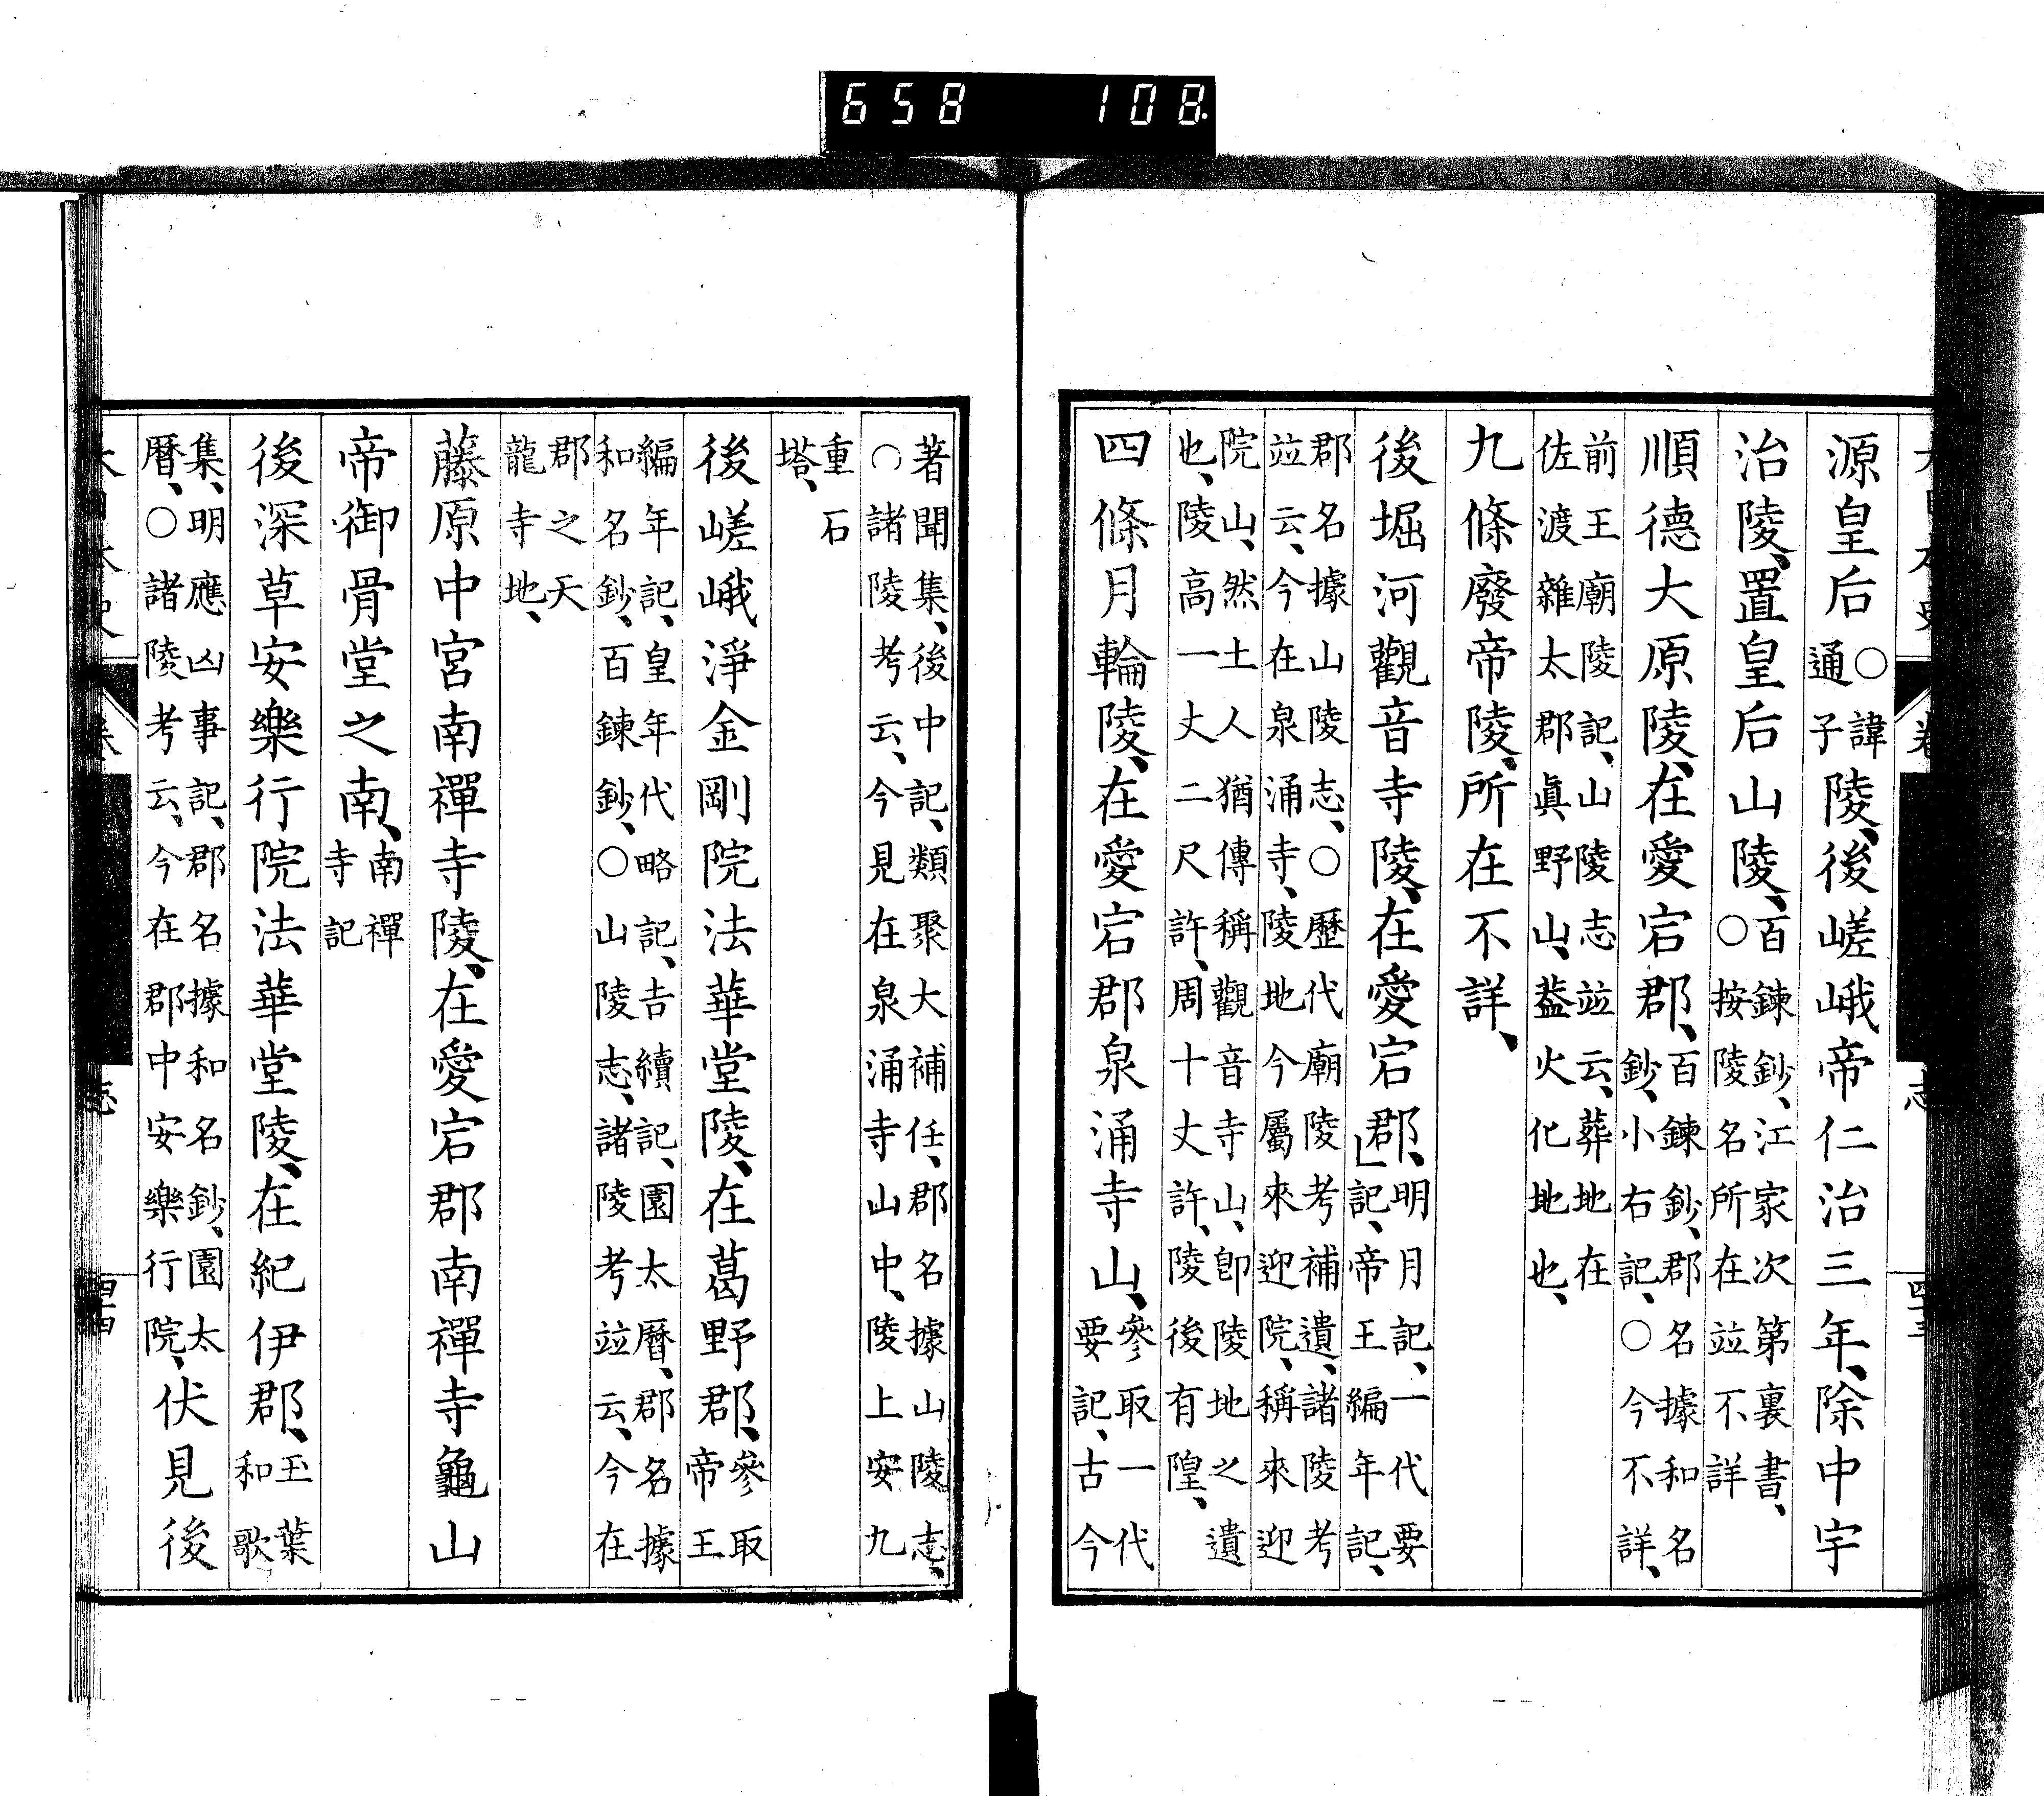 658 108
源皇后○諱通子陵、後嵯峨帝仁治三年、除中宇
治陵、置皇后山陵、百鍊鈔、江家次第裏書、○按陵名所在竝不詳
順德大原陵、在愛宕郡、百鍊鈔、郡名據和名鈔、小右記、○今不詳、
前王廟陵記、山陵志竝云、葬地在佐渡雜太郡眞野山、葢火化地也、
九條廢帝陵、所在不詳、
後堀河觀音寺陵、在愛宕郡、明月記、一代要記、帝王編年記、
郡名據山陵志、○歷代廟陵考補遺、諸陵考竝云、今在泉涌寺、陵地今屬來迎院、稱來迎
院山、然土人猶傳稱觀音寺山、卽陵地之遺也、陵高一丈二尺許、周十丈許、陵後有隍、
四條月輪陵、在愛宕郡泉涌寺山、參取一代要記、古今
著聞集、後中記、類聚大補任、郡名據山陵志、○諸陵考云、今見在泉涌寺山中、陵上安九
重石塔、
後嵯峨淨金剛院法華堂陵、在葛野郡、參取帝王
編年記、皇年代略記、吉續記、園太曆、郡名據和名鈔、百鍊鈔、○山陵志、諸陵考竝云、今在
郡之天龍寺地、
藤原中宮南禪寺陵、在愛宕郡南禪寺龜山
帝御骨堂之南、南禪寺記
後深草安樂行院法華堂陵、在紀伊郡、玉葉和歌
集、明應凶事記、郡名據和名鈔、園太曆、○諸陵考云、今在郡中安樂行院、伏見後